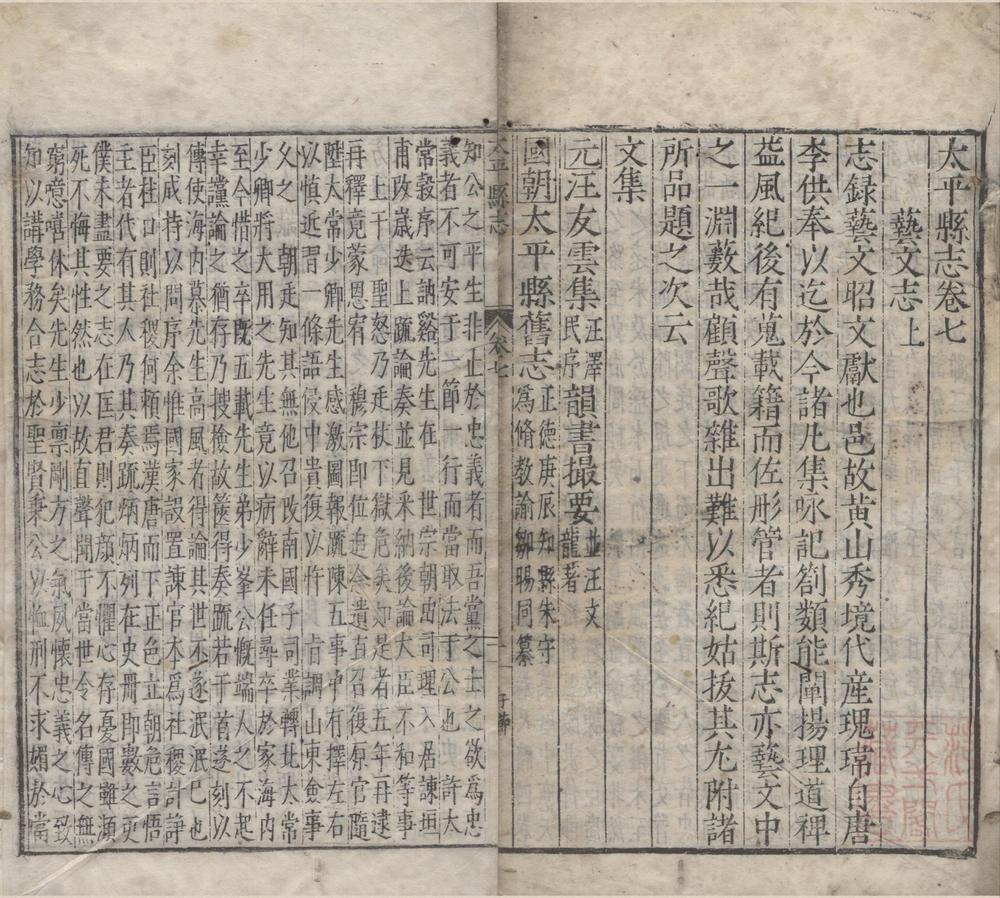 太平縣志卷七
藝文志上
志錄藝文昭文獻也邑故黃山秀境代產瑰瑋自唐
李供奉以迄於今諸凡集咏記劄類能闡揚理道裨
益風紀後有蒐載籍而佐彤管者則斯志亦藝文中
之一淵藪哉顧聲歌雜出難以悉紀姑拔其尤附諸
所品題之次云
文集
元汪友雲集 汪澤民序 韻書撮要 並汪文龍著
國朝太平縣舊志 正德庚辰知縣朱守為脩教諭鄒賜同纂
太平縣志 卷七 一
知公之平生非止於忠義者而吾黨之士之欲為忠
義者不可安于之節一行而當取法于公也 許大
常穀序云訥谿先生在 世宗朝由司理入居諫垣
甫改歲迭上疏論奏並見采納後論大臣不和等事
上干 聖怒乃廷杖下獄危矣如是者五年再逮
再釋竟蒙恩宥 穆宗即位追念遺直召復原官隨
陞太常少卿先生感激圖報疏陳五事中有擇左右
以慎近習一條語侵中貴復以忤 旨調山東僉事
父之 朝廷知其無他召改南國子司業轉北太常
少卿將大用之先生竟以病辭未任尋卒於家海內
至今惜之卒既五載先生弟少峯公慨端人之不起
幸讜論之猶存乃搜檢故篋得奏疏若干首遂刻以
傳使海內慕先生高風者得論其世不遂泯泯已也
刻成持以問序余惟國家設置諫官本為社稷計諍
臣杜口則社稷何賴焉漢唐而下正色立朝危言悟
主者代有其人乃其奏疏炳炳列在史冊即數之更
僕未盡要之志在匡君則犯顏不懼心存憂國雖瀕
死不悔其性然也以故直聲聞于當世令名傳之無
窮噫嘻休矣先生少禀剛方之氣夙懷忠義之心致
知以講學務合志於聖賢秉公以恤刑不求媚於當